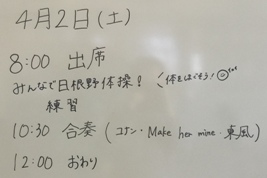 4月2日(土)
8:00 出席
みんなで日根野体操! 体をほぐそう!
練習
10:30 合奏 (コナン・Make her mine・東風)
12:00 おわり